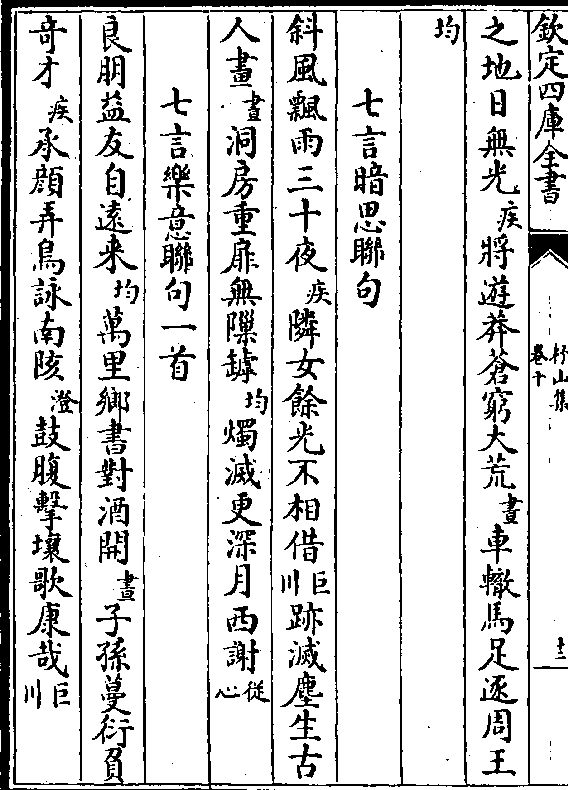 欽定四庫全書
杼山集
卷十
十二
之地日無光疾將遊莽蒼窮大荒晝車轍馬足逐周王
均
七言暗思聯句
斜風飄雨三十夜疾隣女餘光不相借巨川跡滅塵生古
人畫晝洞房重扉無隟罅均燭滅更深月西謝從心
七言樂意聯句一首
良朋益友自遠来均萬里鄉書對酒開晝子孫蔓衍負
竒才疾承顔弄鳥詠南陔澄鼓腹擊壤歌康哉巨川